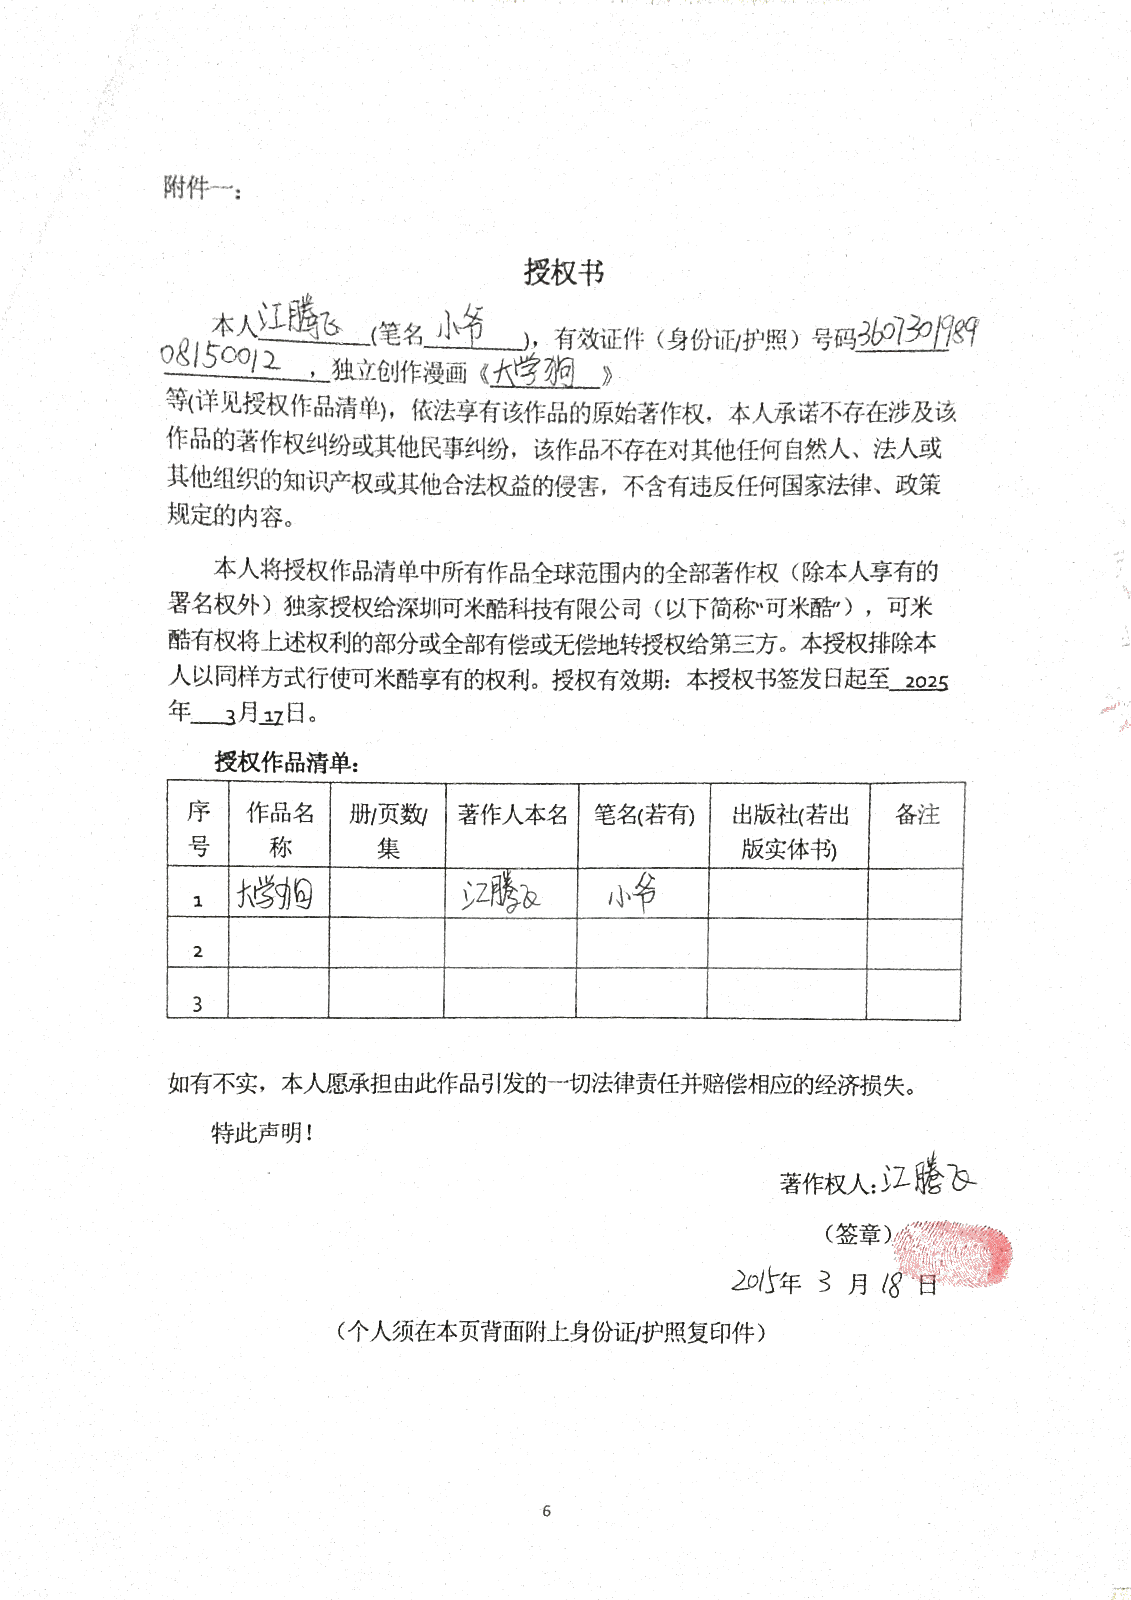 附件一：
授权书
本人江腾飞（笔名 小爷 ），有效证件（身份证/护照）号码3607301989
08150012 ，独立创作漫画《大学狗 》
等(详见授权作品清单)，依法享有该作品的原始著作权，本人承诺不存在涉及该
作品的著作权纠纷或其他民事纠纷，该作品不存在对其他任何自然人、法人或
其他组织的知识产权或其他合法权益的侵害，不含有违反任何国家法律、政策
规定的内容。
本人将授权作品清单中所有作品全球范围内的全部著作权（除本人享有的
署名权外）独家授权给深圳可米酷科技有限公司（以下简称“可米酷”），可米
酷有权将上述权利的部分或全部有偿或无偿地转授权给第三方。本授权排除本
人以同样方式行使可米酷享有的权利。授权有效期：本授权书签发日起至 2025
年 3月17日。
授权作品清单：
序号 作品名称 册/页数/集 著作人本名 笔名(若有) 出版社(若出版实体书) 备注
1 大学狗 江腾飞 小爷
2
3
如有不实，本人愿承担由此作品引发的一切法律责任并赔偿相应的经济损失。
特此声明！
著作权人：江腾飞
（签章）
2015年 3 月 18 日
（个人须在本页背面附上身份证/护照复印件）
6